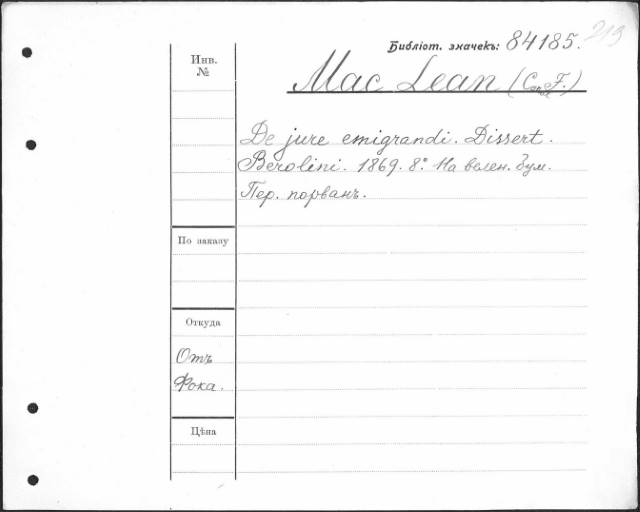 213
Библіот. значекъ: 84185.
Инв.
№
Mac Lean (Car. F.)
De jure emigrandi. Dissert.
Berolini. 1869. 8° На велен. бум.
Пер. порванъ.
По заказу
Откуда
Отъ
Фока.
Цѣна